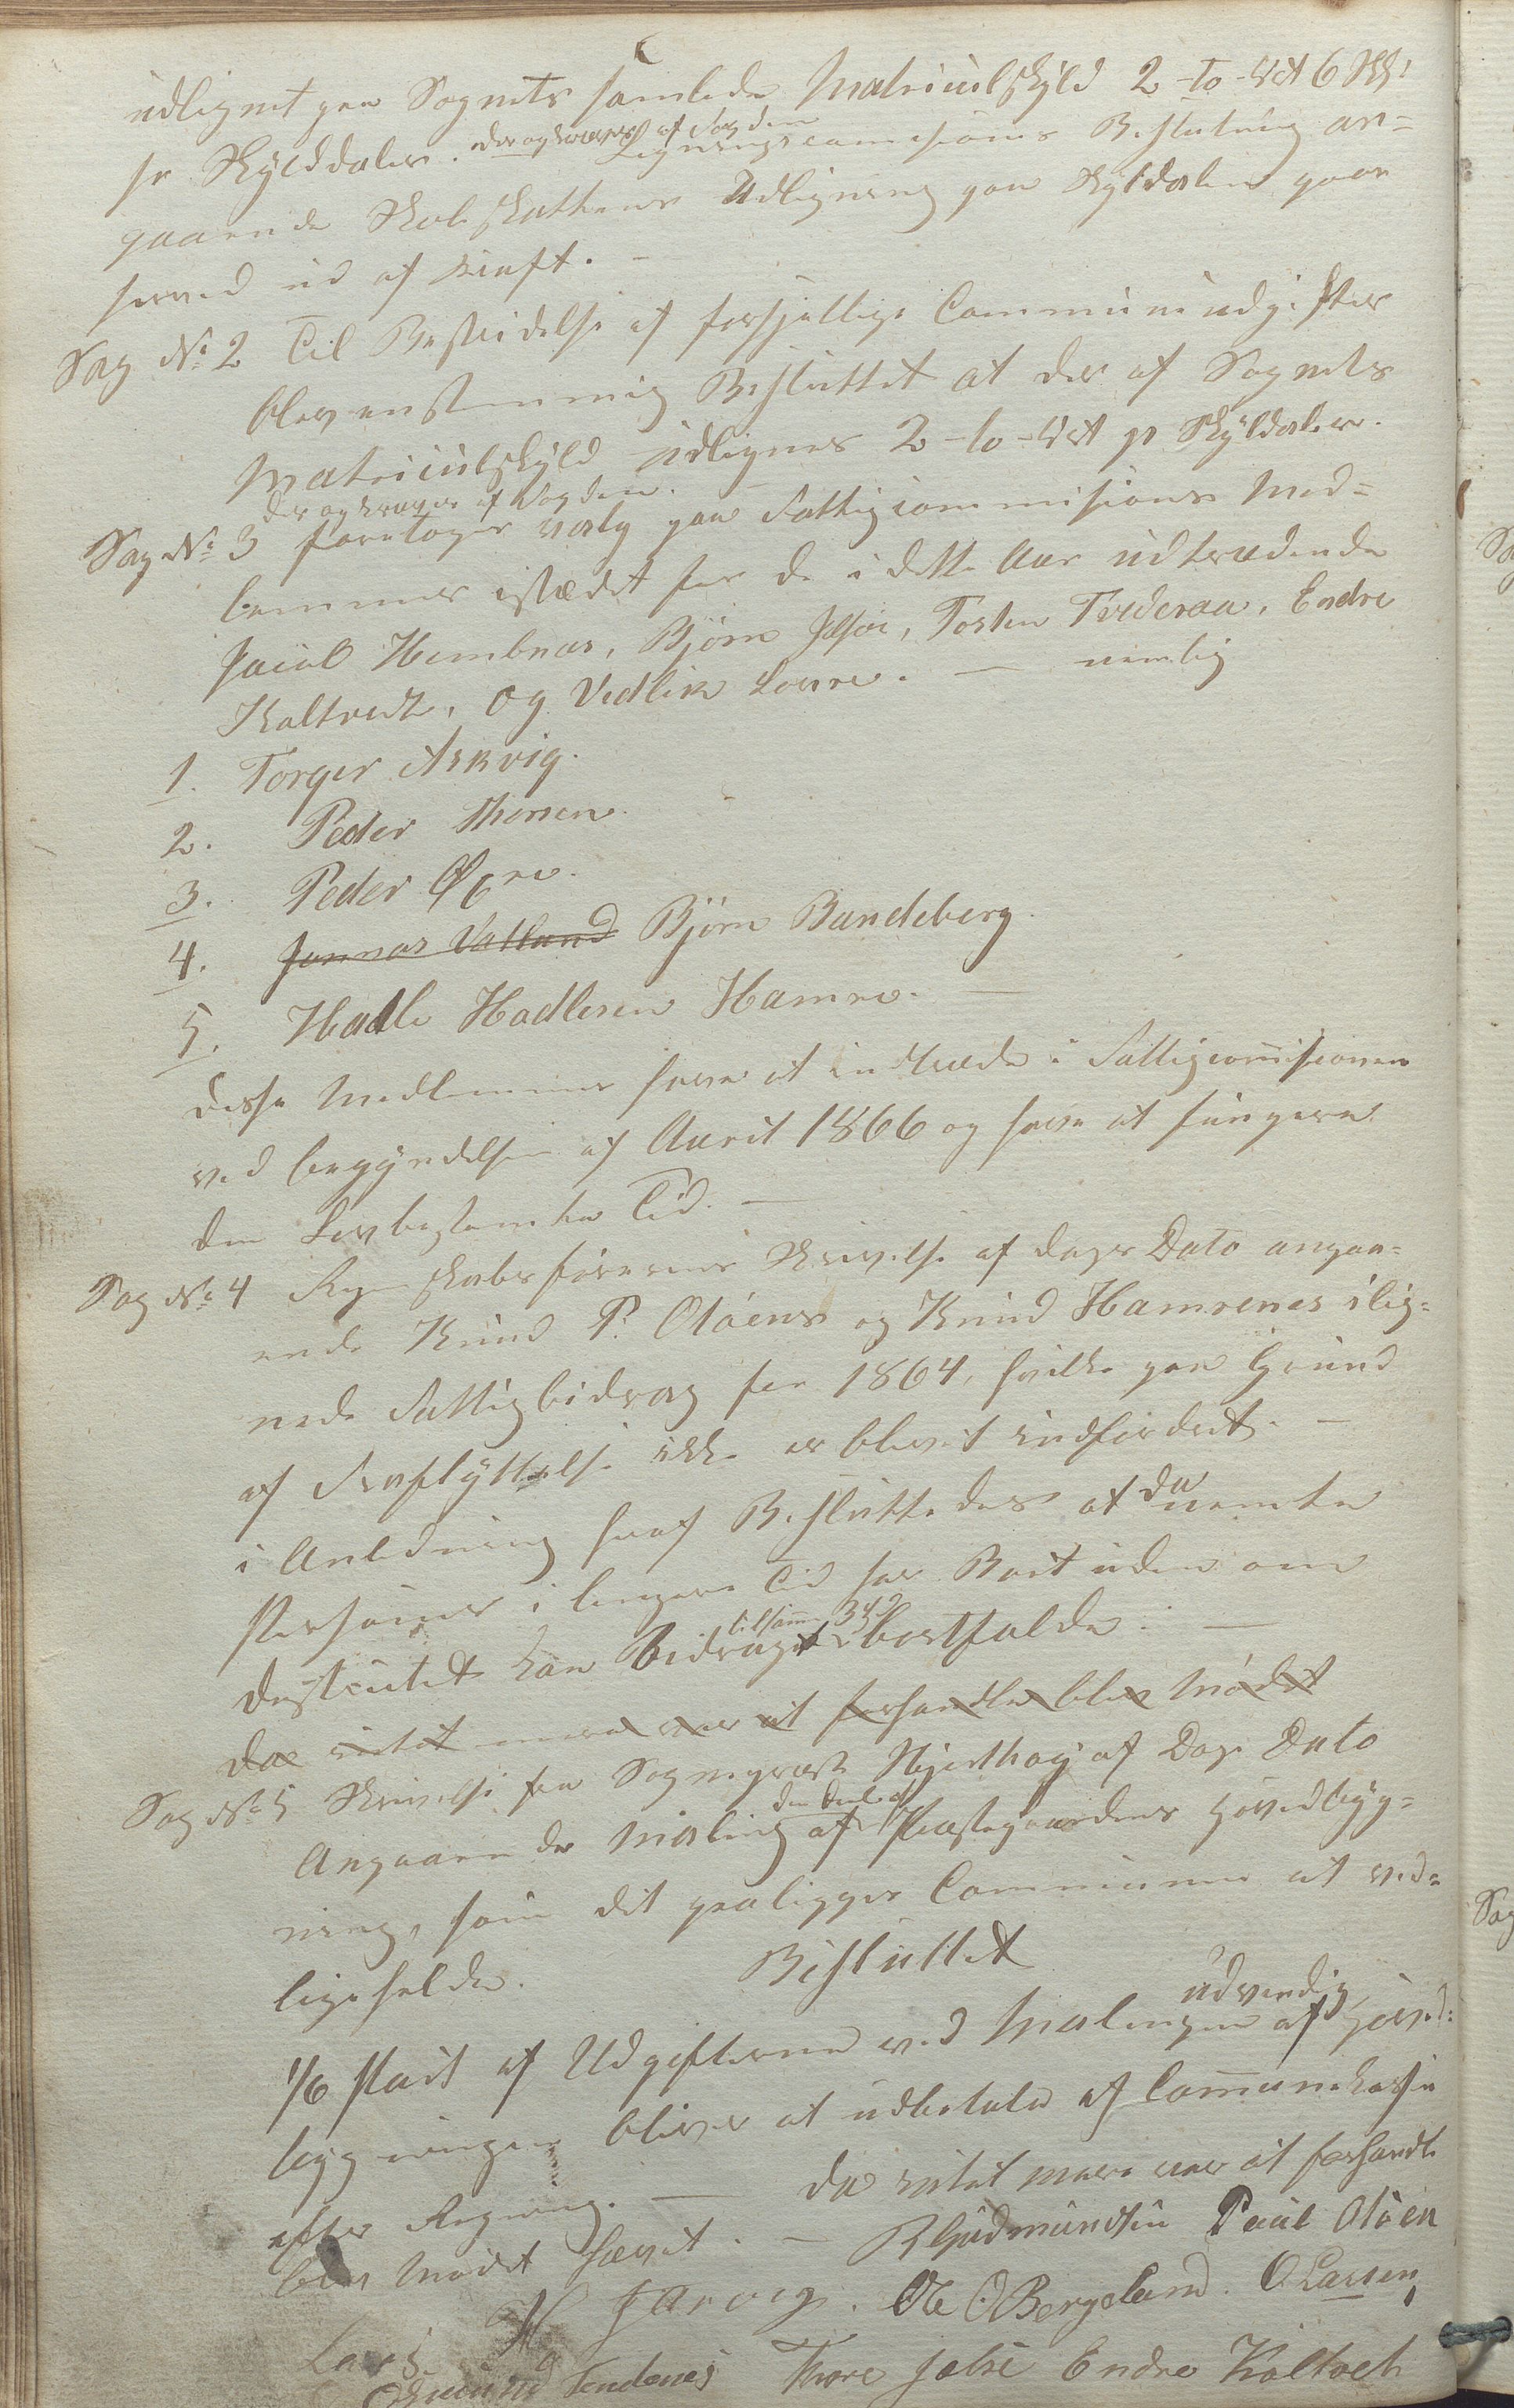 udlignet paa Sognets samlede Matriculskyld 2 - to - Sk 6 Skl
pr Skylddaler. der opkræves af Fogden
Ligningscomisions Beslutning an=
gaaende Skoleskattens Udligning paa Skyldalen gaar
herved ud af Kraft. -
Sag No 2 Til Bestridelse af forsjællige Communeudgifter
blev enstemmig Besluttet at der af Sognets
Matriculskyld udlignes 2 - to - Skl pr Skyldaler.
der opkræves af Fogden.
Sag No 3 foretoges valg paa Fattigcommisions Med=
lemmer istædet for de i dette Aar udtrædende
Jacob Hembnæs, Bjørn Jelsøe, Torsten Tvederaa, Endre
Koltvedt, og Vedlik Lovre. — nemlig
1. Torger Askvig.
2. Peder Thorsen.
3. Peder Øfre.
4. Jonnas Vatland Bjørn Bandeberg.
5. Hadle Hadlesen Hamre. —
disse Medlemmer have at indtræde i Fattigcomisionen
ved begyndelsen af Aaret 1866 og have at fungere
den Lovbestemte Tid. —
Sag No 4 Regnskabsførerens Skrivelse af dags Dato angaa=
ende Knud P. Otøens og Knud Hamrenes ilig=
nede Fattigbidrag for 1864, hvilke paa Grund
af Fraflyttelse ikke er blevet indfordret. -
i Anledning heraf Besluttedes at da nævnte
Personer i lengere Tid har Boet uden om
Destrictet kan Bidraget bortfalde. —
tilsamm
Da intet mere var at forhandle blev Mødet
Sag No 5 Skrivelse fra Sogneprest Hjorthøy af Dags Dato
Angaaende Maling af den Deel af Præstegaardens Hovedbyg=
ning, som det paaligger Communen at ved=
ligeholde. Besluttet
1/6 Part af Udgifterne ved Malingen udvendig af Hoved=
bygningen bliver at udbetale af Communekassen
efter Regning. — Da intet mere var at forhandle
blev Mødet hævet. — R Gudmundsen Paul Otøen
H Jarvig. Ole O Bergeland. O Larsen,
Lars
Tendenes Thore Jelse Endre Koltveit